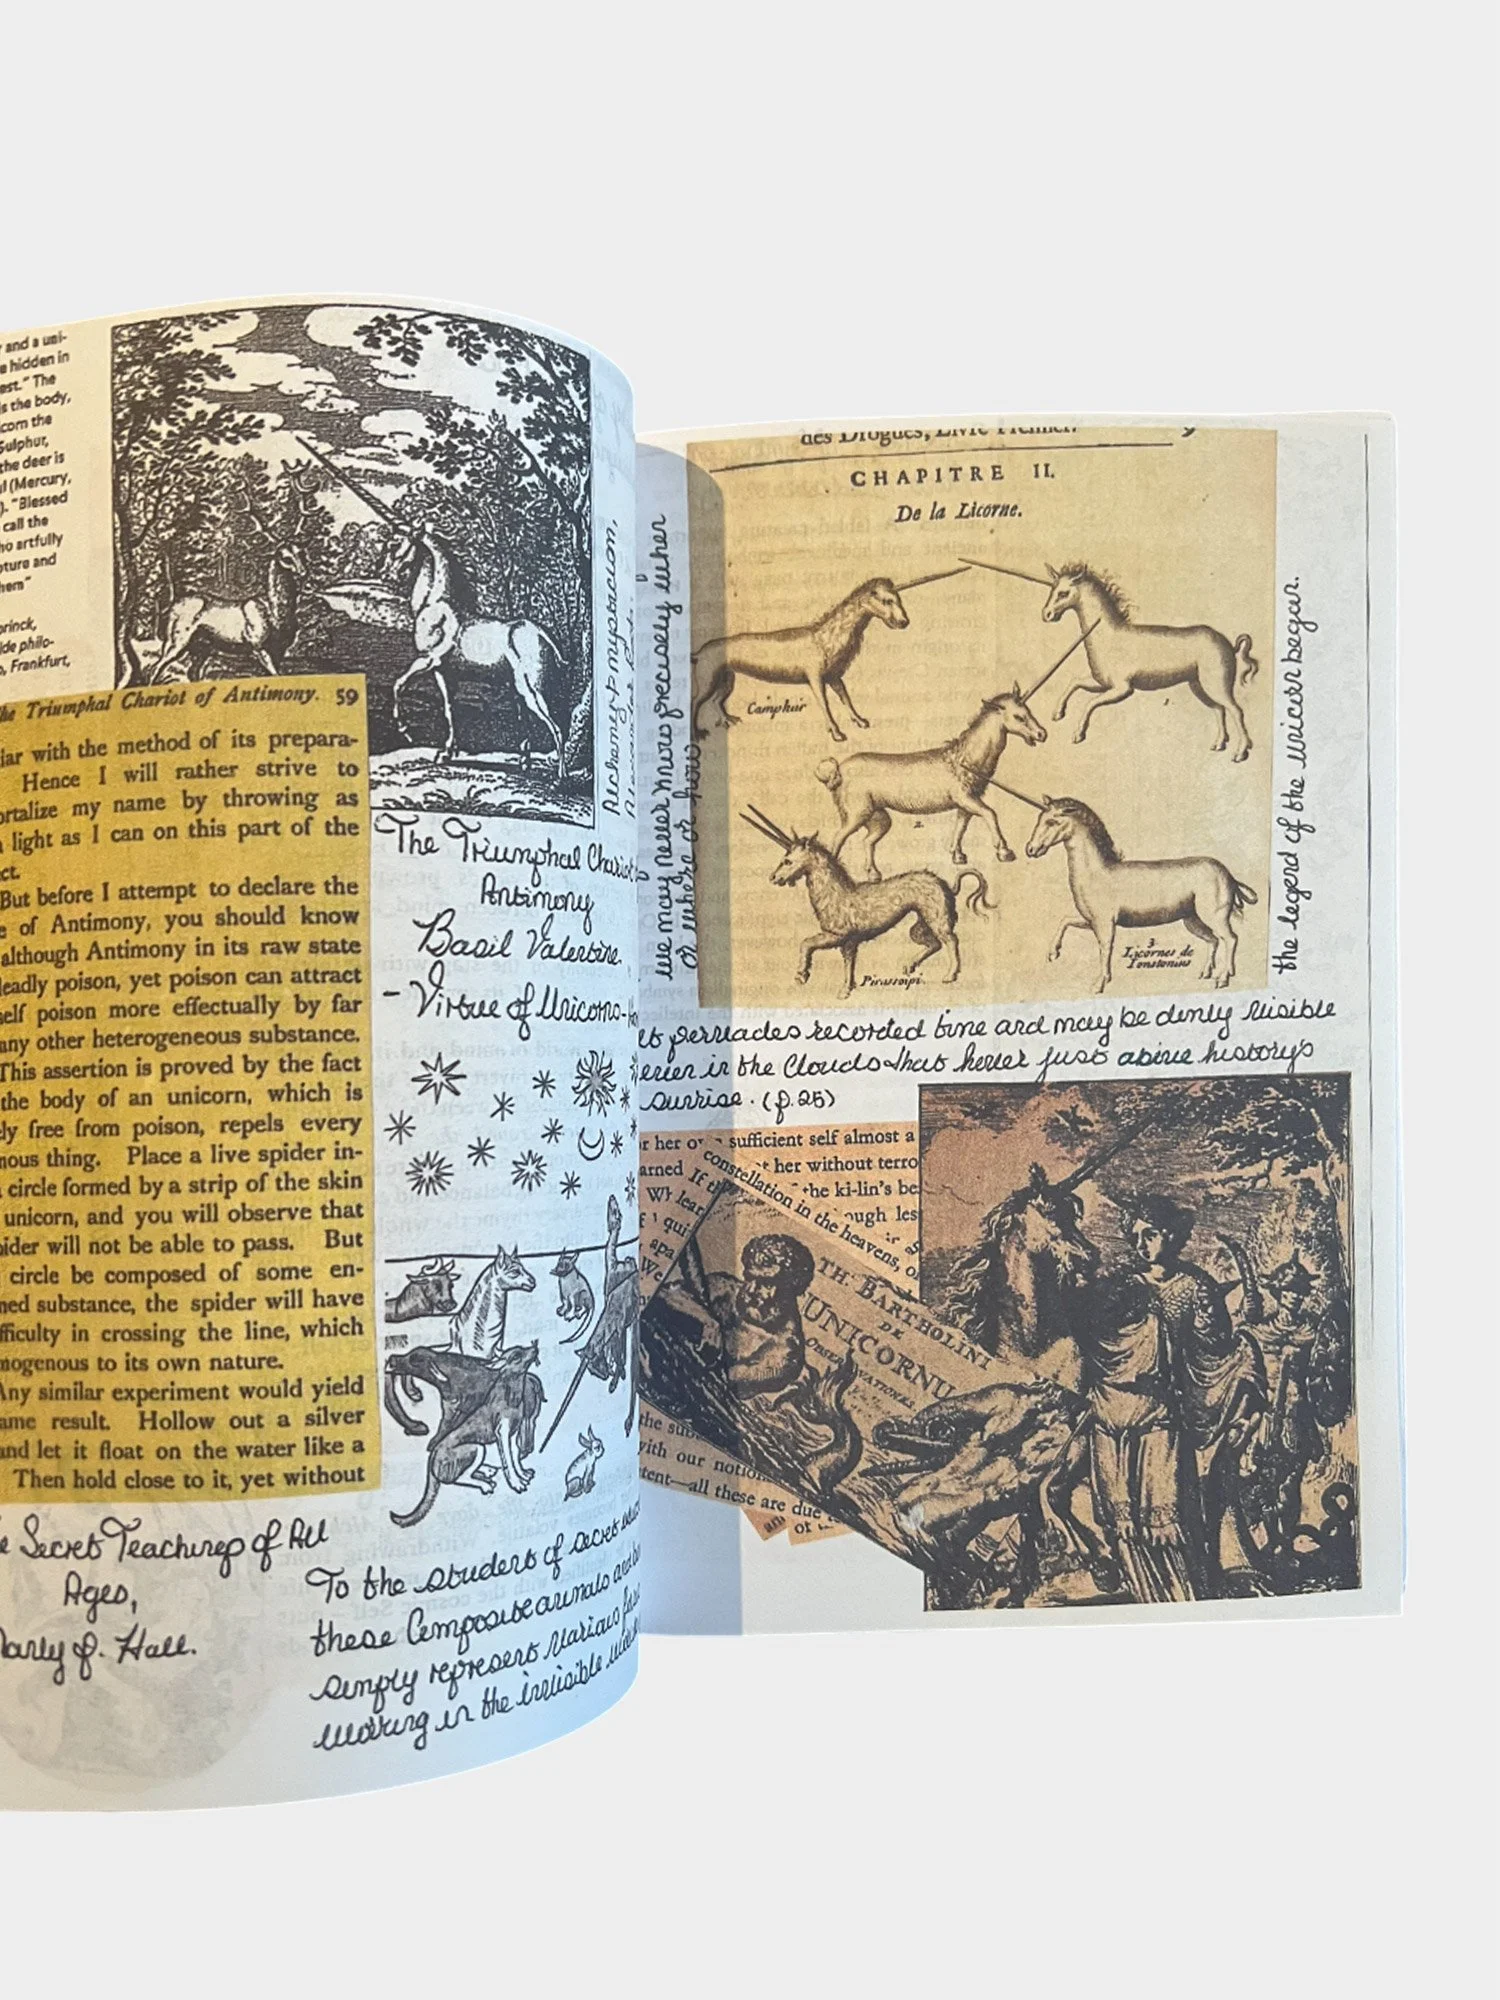 and a uni-
hidden in
est." The
s the body,
corn the
Sulphur,
the deer is
(Mercury,
). "Blessed
call the
ho artfully
pture and
hem"
orinck,
de philo-
, Frankfurt,
he Triumphal Chariot of Antimony. 59
iar with the method of its prepara-
Hence I will rather strive to
ortalize my name by throwing as
light as I can on this part of the
ct.
But before I attempt to declare the
e of Antimony, you should know
although Antimony in its raw state
deadly poison, yet poison can attract
self poison more effectually by far
any other heterogeneous substance.
This assertion is proved by the fact
the body of an unicorn, which is
ly free from poison, repels every
nous thing. Place a live spider in-
circle formed by a strip of the skin
unicorn, and you will observe that
pider will not be able to pass. But
circle be composed of some en-
ned substance, the spider will have
fficulty in crossing the line, which
mogenous to its own nature.
Any similar experiment would yield
ame result. Hollow out a silver
and let it float on the water like a
Then hold close to it, yet without
Alchemy & mysticism,
The Triumphal Chariot
Antimony
Basil Valentine
- Virtue of Unicorns -
e Secret Teachings of All
Ages,
Manly P. Hall.
To the student of secret
these composite animals and
simply represent various
working in the invisible
des Drogues, Livre Premier. 9
CHAPITRE II.
De la Licorne.
Camphur
1.
2.
Pirassoipi.
3.
Licornes de
Ionstonius
we may never know precisely when
or where or how
the legend of the unicorn began.
It pervades recorded time and may be dimly visible
even in the clouds that hover just above history's
sunrise. (p.25)
r her o sufficient self almost a
arned her without terro
the ki-lin's be
ough les
constellation in the heavens, o
If
lear
qui
apa
We
TH. BARTHOLINI
DE
UNICORNU
OBSERVATIONES
the sub
with our notion
tent—all these are due